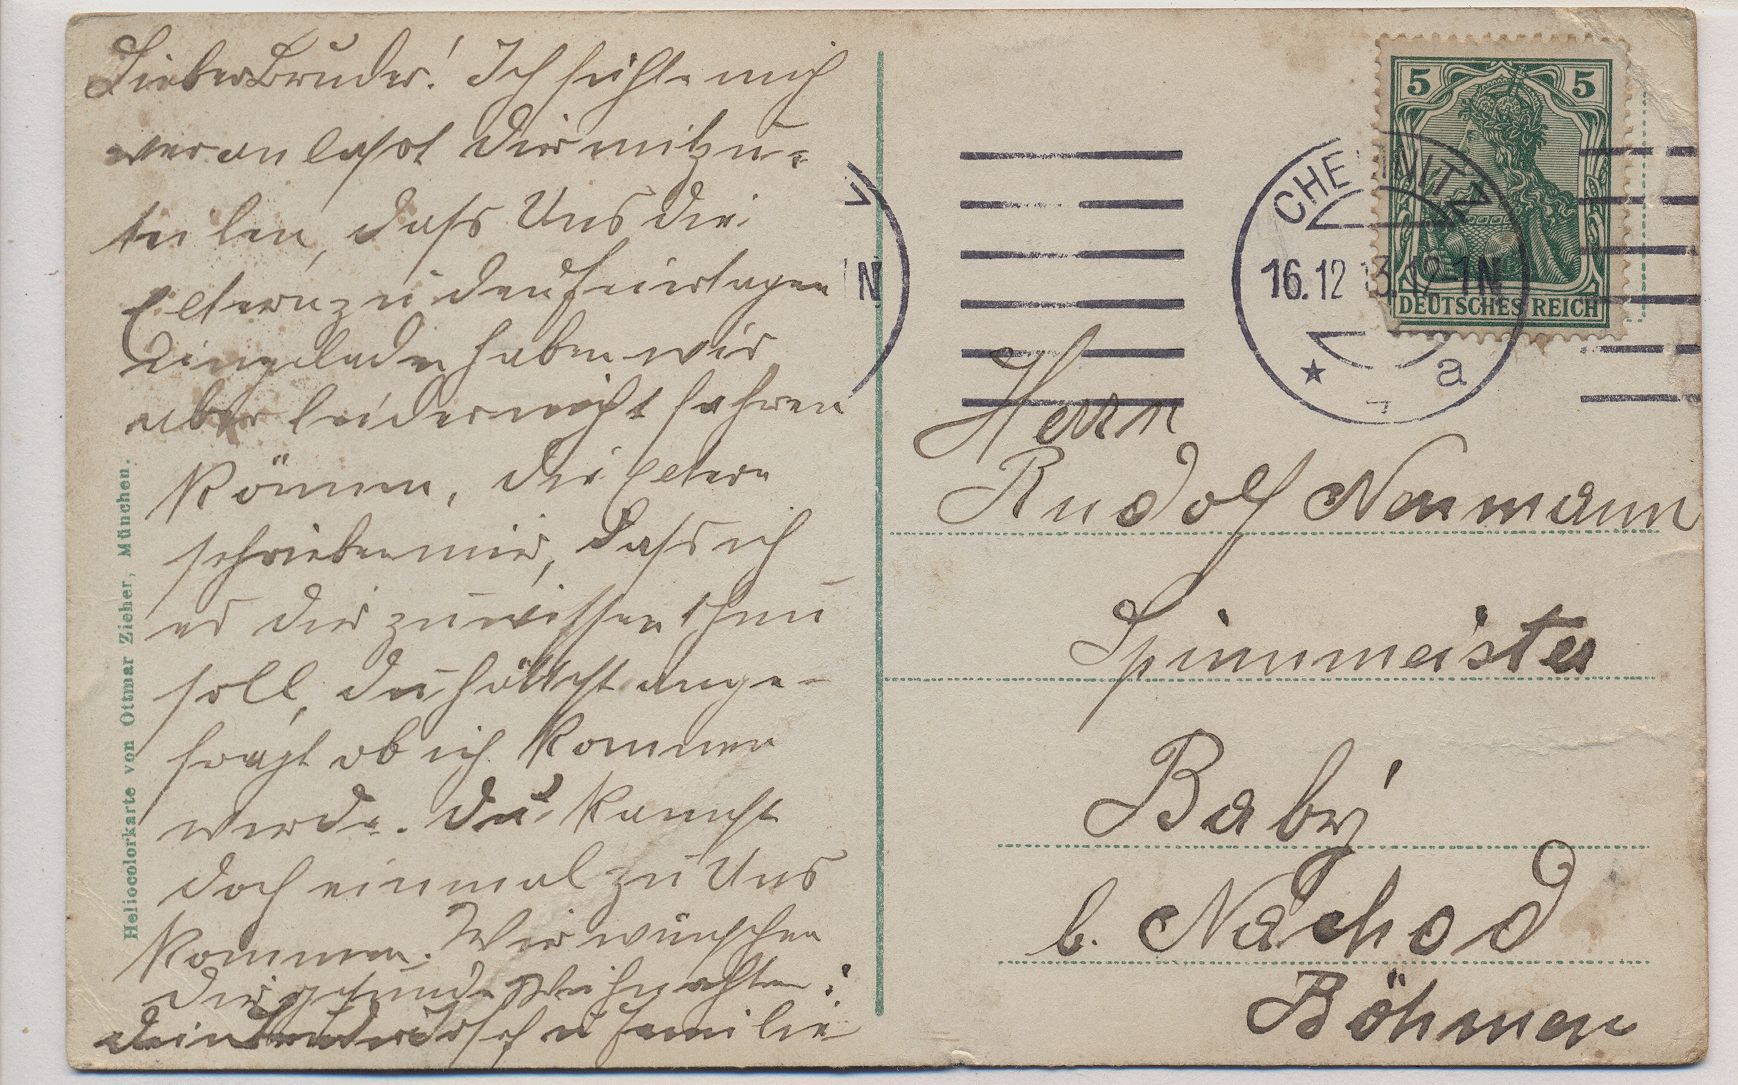 Lieber Bruder! Ich fühle mich
veranlasst dir mitzu-
teilen, dass Uns die
Eltern zu den Feiertagen
Eingeladen haben wir
aber leider nicht fahren
können, die Eltern
schrieben mir, dass ich
es dir zu wissen thun
soll, du hättest ange-
fragt ob ich kommen
werde. du kannst
doch einmal zu Uns
kommen. Wir wünschen
dir gesunde Weihnachten:
dein Bruder u Familie
Heliocolorkarte von Ottmar Zieher, München.
5 5
DEUTSCHES REICH
CHEMNITZ
16.12 13. 12-1N
* a
V
1N
Herrn
Rudolf Neumann
Spinnmeister
Babý
b. Nachod
Böhmen